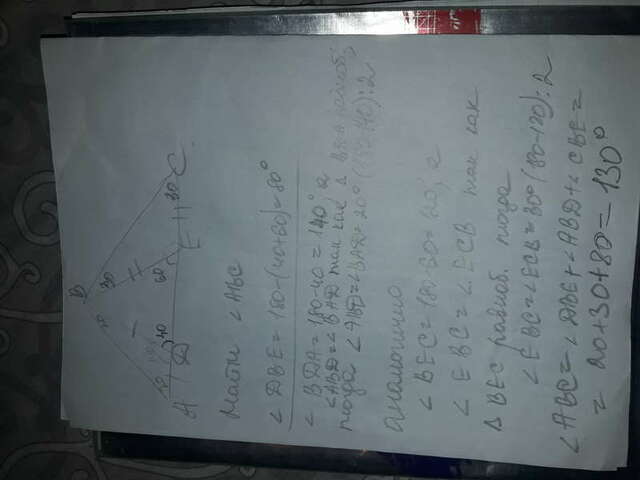 B
20 30
20 140 40 60 30
A D E C
Найти ∠ABC
∠DBE = 180-(40+60)=80°
∠BDA = 180-40 = 140°, а
∠ABD=∠BAD так как Δ равноб,
тогда ∠ABD=∠BAD=20° (180-140):2
аналогично
∠BEC=180-60=120, а
∠EBC=∠ECB так как
Δ BEC равноб. тогда
∠EBC=∠ECB=30° (180-120):2
∠ABC=∠DBE+∠ABD+∠CBE=
= 20+30+80=130°